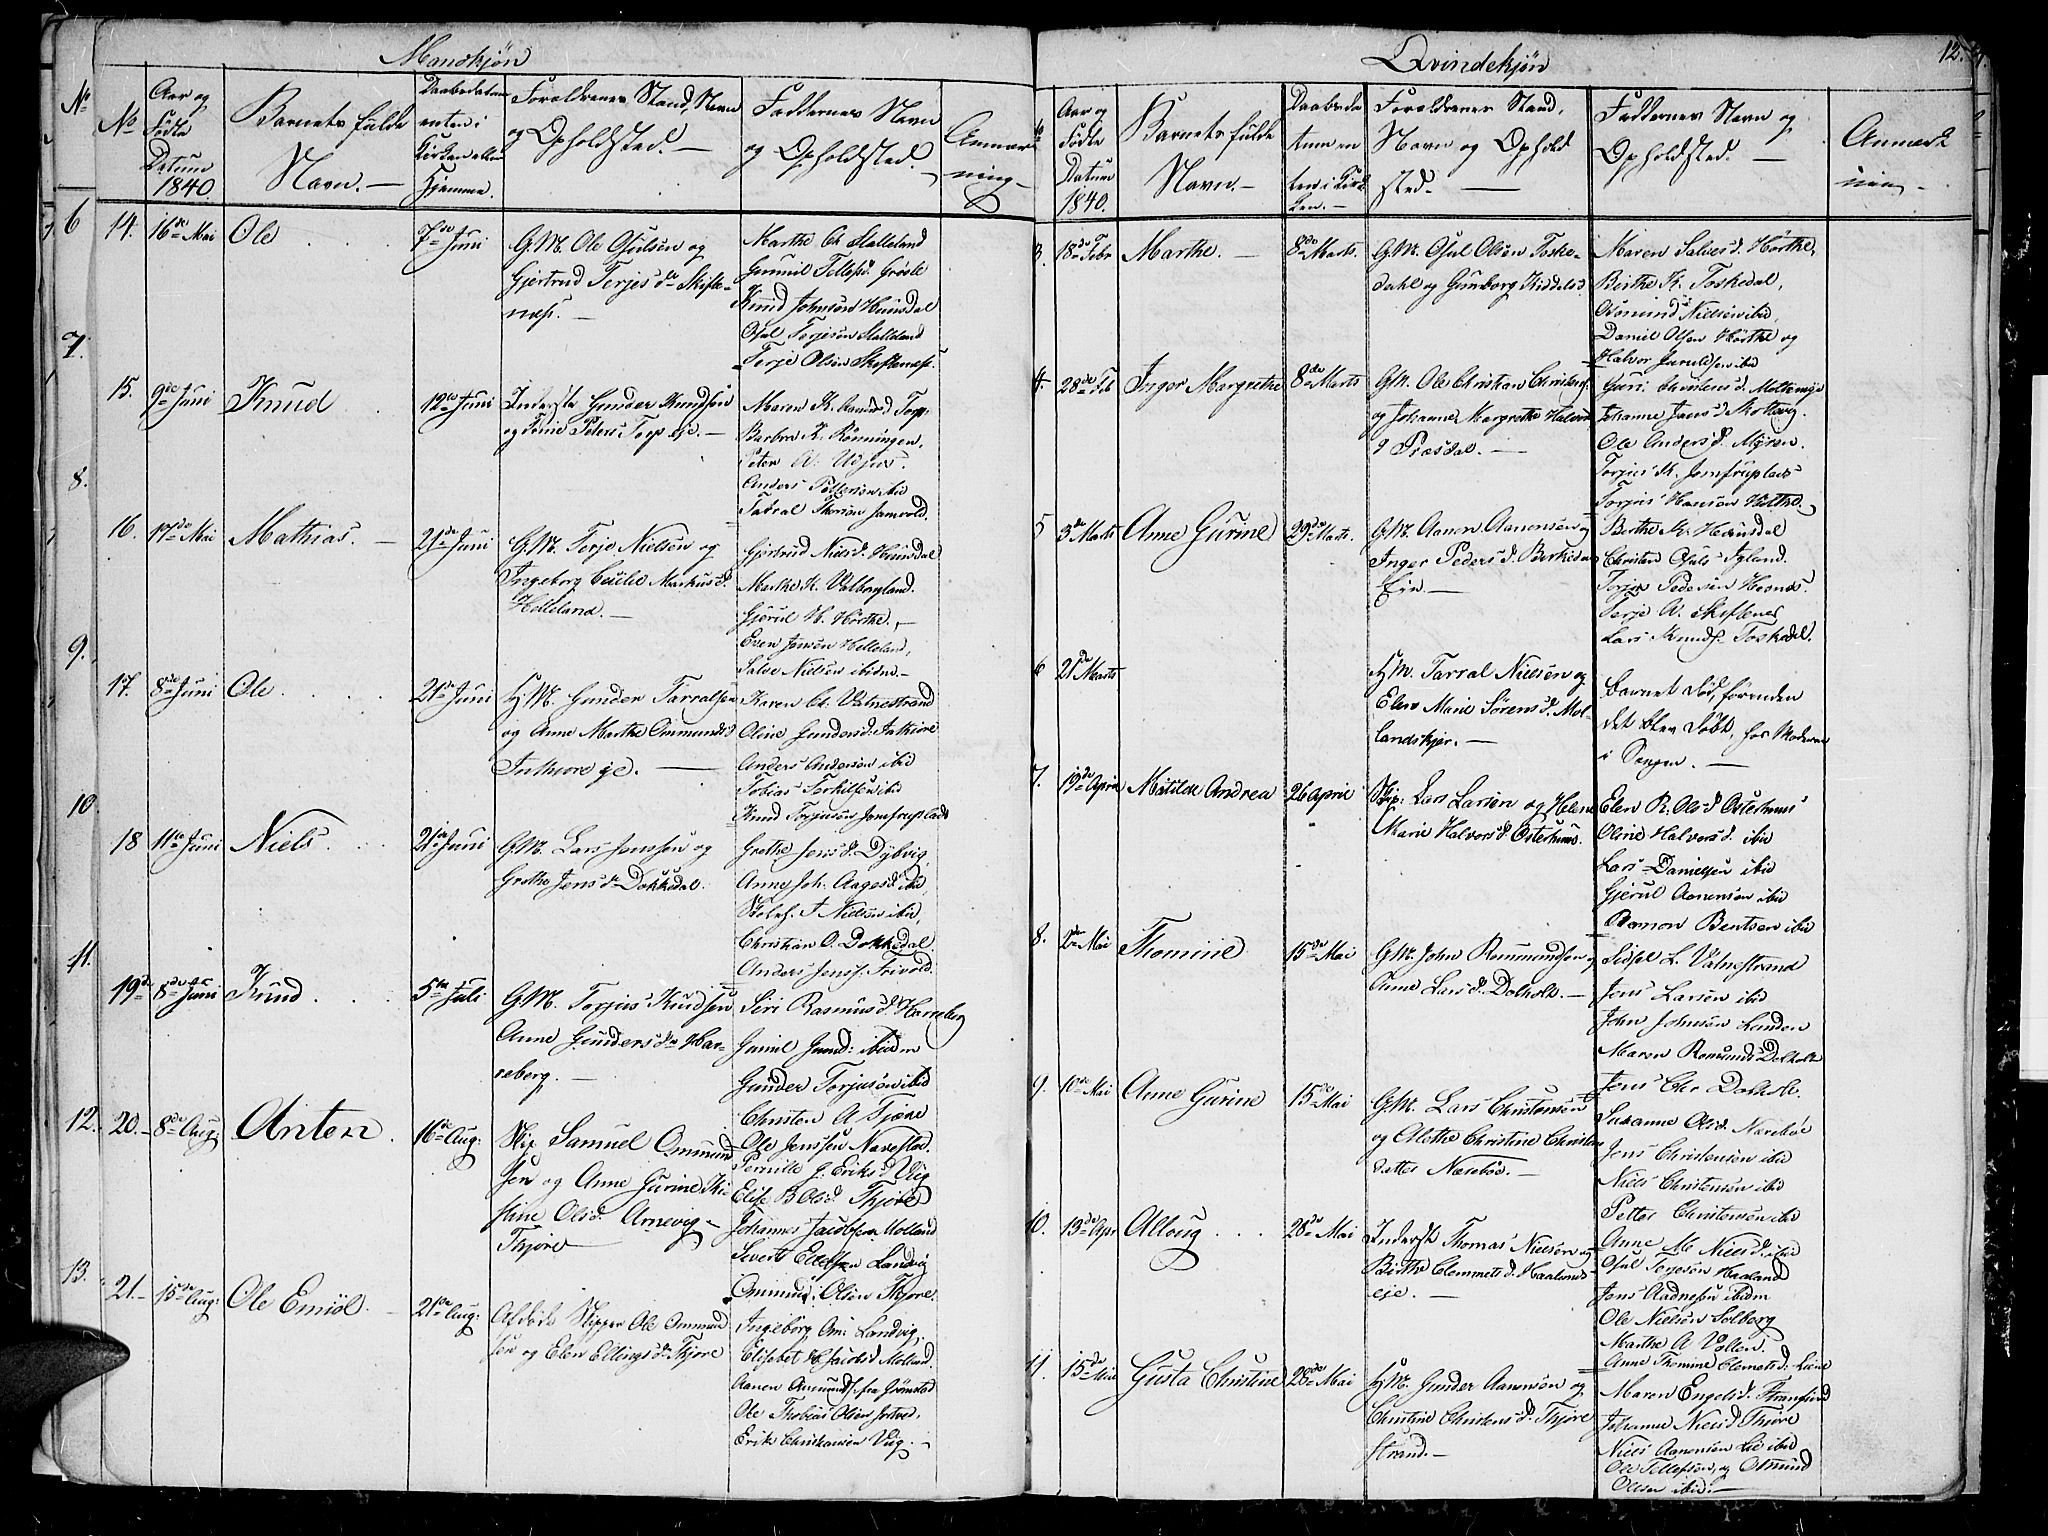 Mandkjøn
No
No
Aar og
Fødte
Datum
1840.
Barnets fulde
Navn. —
Daabsdatum
enten i
Kirken eller
Hjemme.
Forældrenes Stand, Navn
og Opholdsted. —
Faddernes Navn
og Opholdsted.
Anmærk
ning. —
6
7.
8.
9.
10
11.
12.
13.
14.
16de Mai
Ole
7de Juni
G.M. Ole Gjulsen og
Gjertrud Terjesda Skifte-
næs. —
Marthe Ch. Stalleland
Gunnil Tellefsd.
Knud Johnsen Hunsdal
Osul Terjesen Stalleland
Terje Olsen Skiftenæs.
15.
9de Juni
Knud
12te Juni
Inderste Gunder Knudsen
og Tomine Peters Torp eje. —
Maren K. Aanensd Torp.
Barbro K. Rønningen.
Peter A. Udjus.
Anders Pettersen ibid
Tarral Thorsen
16.
17de Mai
Mathias. —
21de Juni
G.M. Terje Nielsen og
Ingeborg Cecilie Markusd.
Helleland. —
Gjertrud Nielsd. Hunsdal
Marthe K. Valborgland.
Gjerul H. Hørthe. —
Even Jensen Helleland,
Salve Nielsen ibidm. —
17.
8de Juni
Ole.
21de Juni
H.M. Gunder Tarralsen
og Anne Marthe Ommundsd
Inthiore eje. —
Karen Ch. Vatnestrand
Oline Gundersd. Inthiore
Anders Andersen ibid
Tobias Terkilsen ibid
Knud Torjusen Jomfruplads
18
11te Juni
Niels.
21de Juni
G.M. Lars Jenssen og
Grethe Jensda Dokkedal.
Grethe Jensd. Dybvig,
Anne Joh. Aagesd ibid,
T. Nielsen ibid,
Christian O. Dokkedal
Anders Jenss. Frivold.
19de
8de Juni
Knud
5te Juli
G.M. Torjus Knudsen
Anne Gundersda Har-
reberg. —
Siri Rasmusd. Harreberg
Gunnil Gund: ibidm
Gunder Torjusøn ibid
Christen A Tjøre
Ole Jenssen Navestad.
20.
8de Aug
Anten
16de Aug:
Skip Samuel Ommund
sen og Anne Gurine Kri
stine Olsd. Arnevig —
Thjøre
Pernille G. Eriksd. Viig
Elise B Olsd. Thjøre
Johannes Jacobsen Molland
Severt Ellefsen Landvig
Ommund Olsen Thjøre.
21.
15de Aug:
Ole Emiol.
21de Aug:
Afdøde Skipper Ole Ommund
sen og Elen Ellingsda Thjøre
Ingeborg Om: Landvig,
Elisabet Jacobsd Molland.
Aanen Ommunds. fra Grømstad
Ole Thobias Olsen
Erik Christiansen Viig. —
Qvindekjøn
12.
Aar og
Fødte
Datum
1840.
Barnets fulde
Navn. —
Daabsda
tum en
ten i Kir
ken. —
Forældrenes Stand,
Navn og Ophold
sted. —
Faddernes Navn og
Opholdsted. —
Anmærk
ning. —
3.
18de Febr
Marthe. —
8de Marts.
G.M. Osul Olsen Toske-
dahl og Gunborg Kiddelsd.
Maren Salvesd. Hørthe,
Birthe K. Toskedal,
Osmund Nielsen ibid,
Daniel Olsen Hørthe og
Halvor Jeruldsen ibid
4.
28de Feb
Inger Margrethe
8de Marts
G.M. Ole Christian Christens.
og Johanne Margrethe Halvors
d Præsdal. —
Guri Christensd.
Johanne Jensd Skottevig.
Ole Andersd. Myren.
Torjus K. Jomfruplads
Torjus Hansen Hørthe. —
5
3de Marts
Anne Gurine
29de Marts.
G.M. Aanen Aanensen og
Inger Pedersd. Birkedal
Eie. —
Birthe K. Hunsdal
Christen Osuls Igland.
Terje Pedersen Hesnes.
Terje A. Skiftenes
Lars Knuds. Toskedal.
6
21de Marts
H.M. Tarral Nielsen og
Elen Marie Sørensd. Mol-
landskjer. —
Barnet død, førenden
det blev døbt, for Moderen
i Sengen. —
7.
19de April
Matilde Andrea
26 April
Skip: Lars Larsen og Helene
Marie Halvorsd. Østerhuus.
Elen R. Olsd Østerhuus
Oline Halvorsd. ibid
Lars Danielsen ibid
Gjerul Aanensen ibid
Ramon Bentsen ibid
8.
2den Mai
Thomine
15de Mai
G.M. John Rommundsen og
Anne Larsd. Dolholt. —
Sidsel L. Vatnestrand
Jens Larsen ibid
John Johnsen Landen
Maren Romunds Dolholt
Jens Chr Dolholt.
9.
10de Mai
Anne Gurine
15de Mai
G.M. Lars Christensen
og Alethe Christine Christens
datter Næsebøe. —
Susanne Olsd. Næsebøe
Jens Christensen ibid
Niels Christensen ibid
Petter Christensen ibid
10.
13de Apr
Alloug . . .
28de Mai
Inderst Thomas Nielsen og
Birthe Clemmetsd. Haaland-
eje. —
Anne M Nielsd. ibid
Osul Terjesen Haaland
Jens Aadnesen ibidm
Ole Nielsen Solberg
Marthe A Vollen.
11.
15de Mai
Gusta Christine
28de Mai
H.M. Gunder Aanensen og
Christine Christensd. Thjøre
strand. —
Anne Thomine Clemetsd.
Maren Engelsd.
Johanne Nielsd Thjøre
Niels Aanensen Lie ibid
Ole Tellefsen, og Osmund
Olsen ibid. —